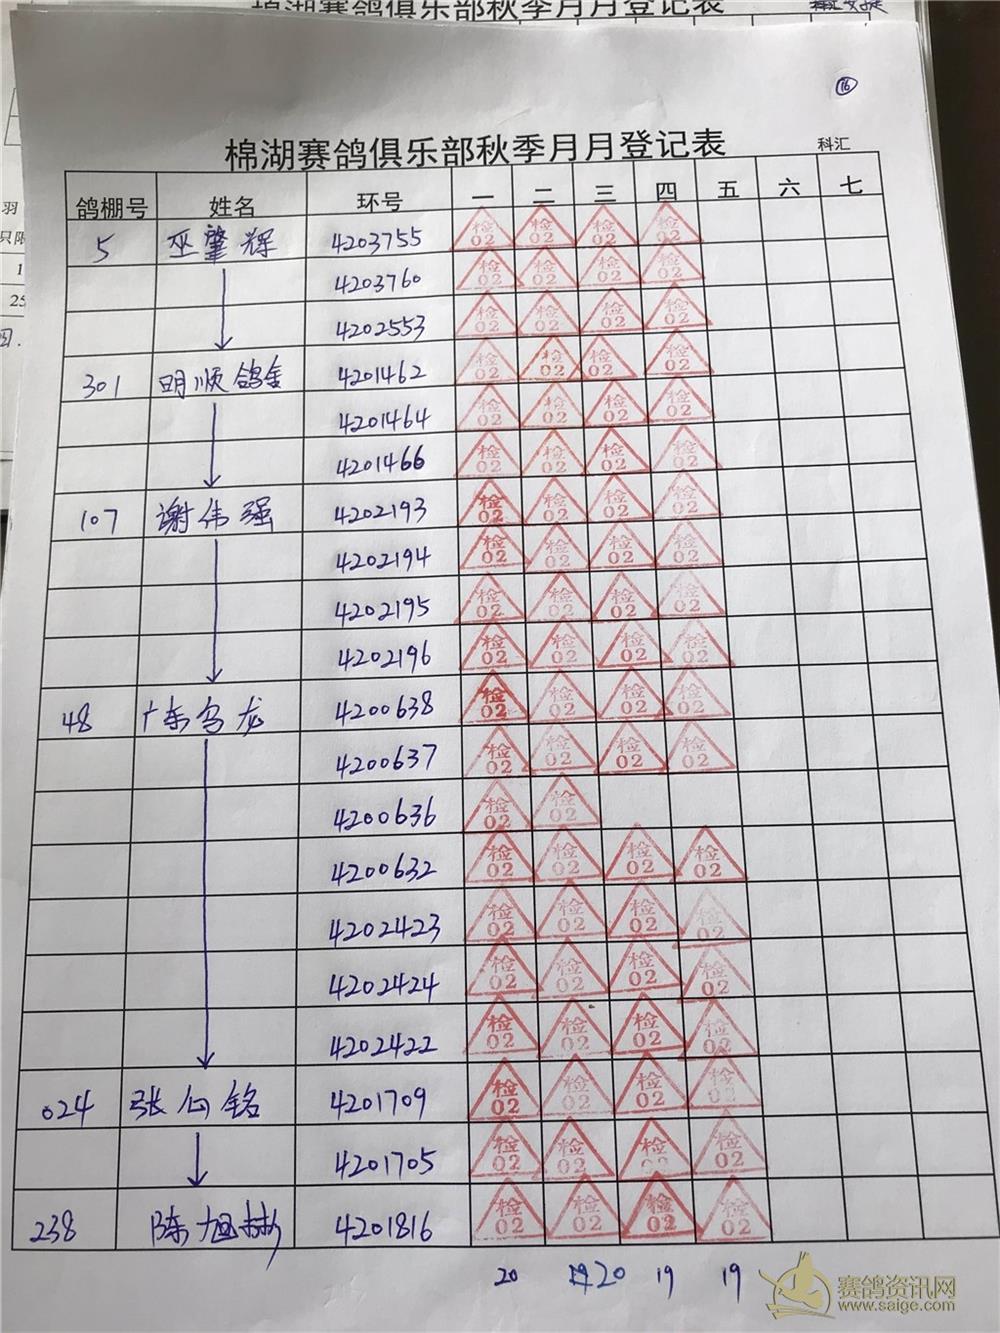 棉湖赛鸽俱乐部秋季月月登记表
16
棉湖赛鸽俱乐部秋季月月登记表 科汇
鸽棚号 姓名 环号 一 二 三 四 五 六 七
5 巫肇辉 4203755 检02 检02 检02 检02
4203760 检02 检02 检02 检02
4202553 检02 检02 检02 检02
301 明顺鸽舍 4201462 检02 检02 检02 检02
4201464 检02 检02 检02 检02
4201466 检02 检02 检02 检02
107 谢伟强 4202193 检02 检02 检02 检02
4202194 检02 检02 检02 检02
4202195 检02 检02 检02 检02
4202196 检02 检02 检02 检02
48 广东乌龙 4200638 检02 检02 检02 检02
4200637 检02 检02 检02 检02
4200636 检02 检02
4200632 检02 检02 检02 检02
4202423 检02 检02 检02 检02
4202424 检02 检02 检02 检02
4202422 检02 检02 检02 检02
024 张向铭 4201709 检02 检02 检02 检02
4201705 检02 检02 检02 检02
238 陈旭彬 4201816 检02 检02 检02 检02
20 20 19 19
羽
只限
1
25
赛鸽资讯网
www.saige.com